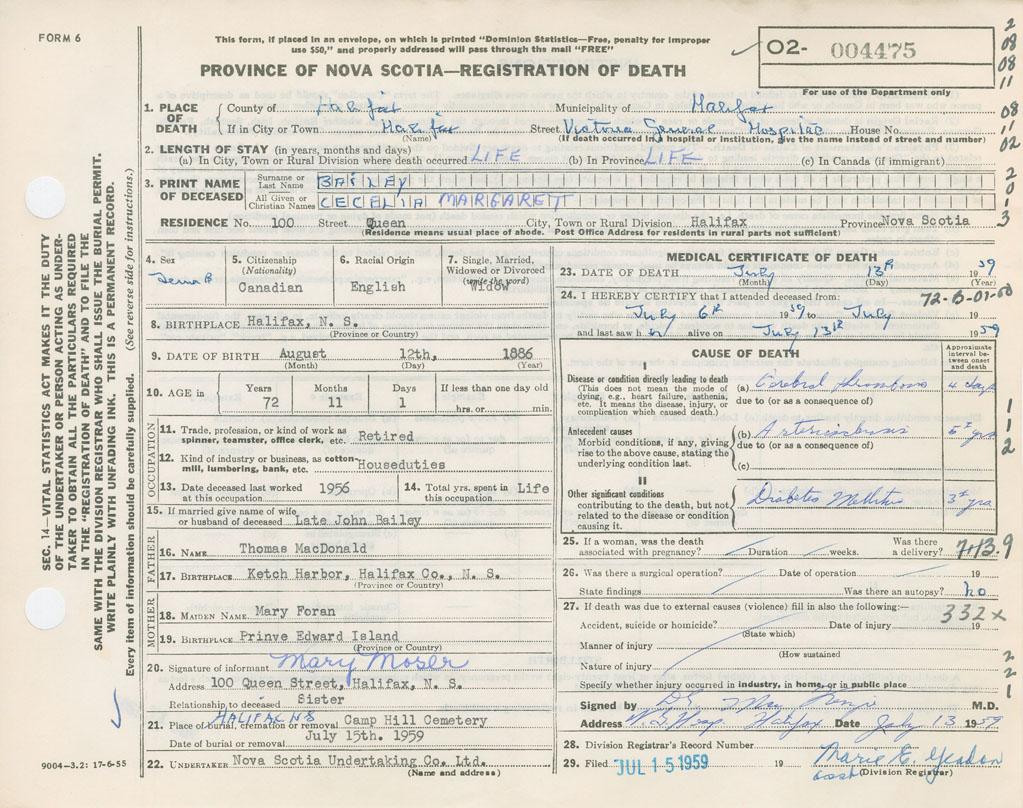 FORM 6
This form, if placed in an envelope, on which is printed "Dominion Statistics—Free, penalty for improper
use $50," and properly addressed will pass through the mail "FREE"
PROVINCE OF NOVA SCOTIA—REGISTRATION OF DEATH
O2- 004475
For use of the Department only
2
08
08
11
08
11
02
2
0
1
3
SEC. 14—VITAL STATISTICS ACT MAKES IT THE DUTY
OF THE UNDERTAKER OR PERSON ACTING AS UNDER-
TAKER TO OBTAIN ALL THE PARTICULARS REQUIRED
IN THE "REGISTRATION OF DEATH" AND TO FILE THE
SAME WITH THE DIVISION REGISTRAR WHO SHALL ISSUE THE BURIAL PERMIT.
WRITE PLAINLY WITH UNFADING INK. THIS IS A PERMANENT RECORD.
Every item of information should be carefully supplied. (See reverse side for instructions.)
1. PLACE OF DEATH
County of Halifax Municipality of Halifax
If in City or Town Halifax Street Victoria General Hospital House No.
(Name) (If death occurred in a hospital or institution, give the name instead of street and number)
2. LENGTH OF STAY (in years, months and days)
(a) In City, Town or Rural Division where death occurred LIFE (b) In Province LIFE (c) In Canada (if immigrant)
3. PRINT NAME OF DECEASED
Surname or Last Name BAILEY
All Given or Christian Names CECELIA MARGARETT
RESIDENCE No. 100 Street Queen City, Town or Rural Division Halifax Province Nova Scotia
(Residence means usual place of abode. Post Office Address for residents in rural parts not sufficient)
4. Sex
5. Citizenship (Nationality) Canadian
6. Racial Origin English
7. Single, Married, Widowed or Divorced (write the word) Widow
8. BIRTHPLACE Halifax, N. S.
(Province or Country)
9. DATE OF BIRTH August 12th, 1886
(Month) (Day) (Year)
10. AGE in Years 72 Months 11 Days 1 If less than one day old hrs. or min.
OCCUPATION
11. Trade, profession, or kind of work as spinner, teamster, office clerk, etc. Retired
12. Kind of industry or business, as cotton-mill, lumbering, bank, etc. Houseduties
13. Date deceased last worked at this occupation 1956
14. Total yrs. spent in this occupation Life
15. If married give name of wife or husband of deceased Late John Bailey
FATHER
16. NAME Thomas MacDonald
17. BIRTHPLACE Ketch Harbor, Halifax Co., N. S.
(Province or Country)
MOTHER
18. MAIDEN NAME Mary Foran
19. BIRTHPLACE Prinve Edward Island
(Province or Country)
20. Signature of informant Mary Moser
Address 100 Queen Street, Halifax, N. S.
Relationship to deceased Sister
HALIFAX NS
21. Place of burial, cremation or removal Camp Hill Cemetery
Date of burial or removal July 15th. 1959
22. UNDERTAKER Nova Scotia Undertaking Co. Ltd.
(Name and address)
9004-3.2: 17-6-55
MEDICAL CERTIFICATE OF DEATH
23. DATE OF DEATH July 13th 1959
(Month) (Day) (Year)
24. I HEREBY CERTIFY that I attended deceased from: 72-B-01-50
July 6th 1959 to July 19
and last saw h alive on July 13th 1959
CAUSE OF DEATH
Approximate interval between onset and death
I
Disease or condition directly leading to death
(This does not mean the mode of dying, e.g., heart failure, asthenia, etc. It means the disease, injury, or complication which caused death.)
(a) Cerebral Thrombosis 4 days
due to (or as a consequence of)
Antecedent causes
Morbid conditions, if any, giving rise to the above cause, stating the underlying condition last.
(b) 5 yrs
due to (or as a consequence of)
(c)
II
Other significant conditions
contributing to the death, but not related to the disease or condition causing it.
Diabetes Mellitus 3 yrs
1
1
2
25. If a woman, was the death associated with pregnancy? Duration weeks. Was there a delivery?
26. Was there a surgical operation? Date of operation 19
State findings Was there an autopsy? no
27. If death was due to external causes (violence) fill in also the following:—
332x
Accident, suicide or homicide? Date of injury 19
(State which)
Manner of injury
(How sustained
Nature of injury
2
2
1
Specify whether injury occurred in industry, in home, or in public place
Signed by M.D.
Address Halifax Date July 13 1959
28. Division Registrar's Record Number
29. Filed JUL 15 1959 19 Marie E. Yeadon
(Division Registrar)